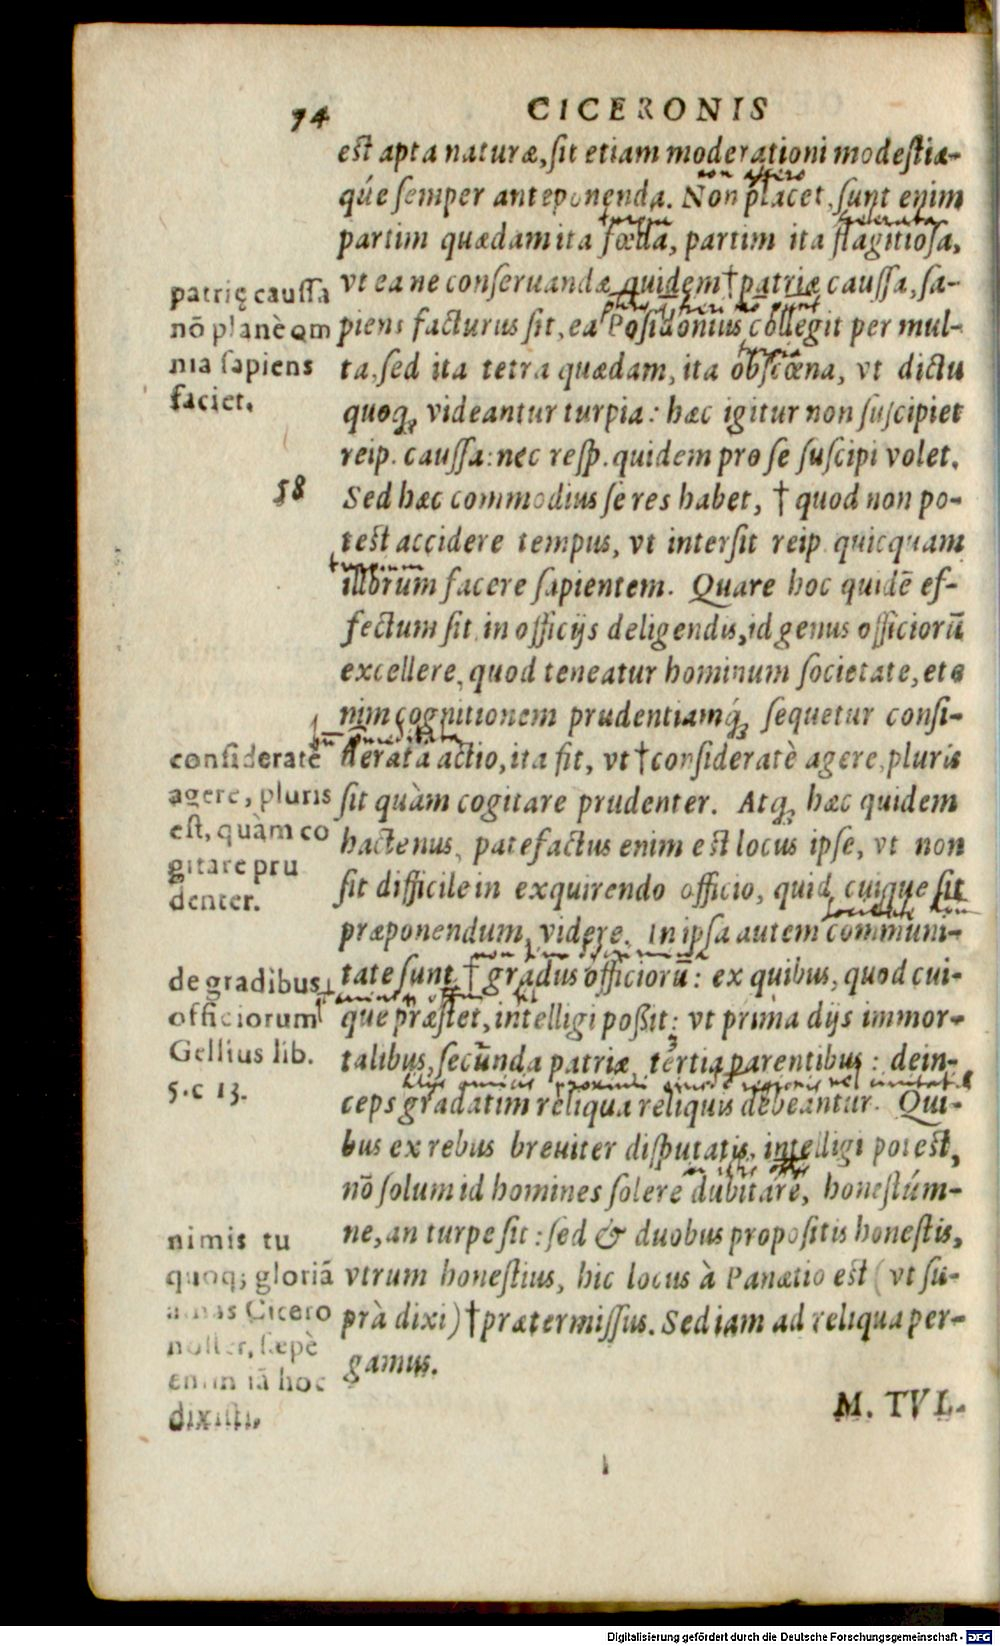 74
CICERONIS
est apta naturæ, sit etiam moderationi modestiæ-
qúe semper anteponenda. Non placet, sunt enim
partim quædam ita fœda, partim ita flagitiosa,
vt ea ne conseruandæ quidem † patriæ caussa, sa-
piens facturus sit, ea Posidonius collegit per mul-
ta, sed ita tetra quædam, ita obscœna, vt dictu
quoq; videantur turpia: hæc igitur non suscipiet
reip. caussa: nec resp. quidem pro se suscipi volet.
Sed hæc commodius se res habet, † quod non po-
test accidere tempus, vt intersit reip. quicquam
illorum facere sapientem. Quare hoc quidē ef-
fectum sit, in officijs deligendis, id genus officiorū
excellere, quod teneatur hominum societate, ete
nim cognitionem prudentiamq́; sequetur consi-
derata actio, ita fit, vt † consideratè agere, pluris
sit quàm cogitare prudenter. Atq; hæc quidem
hactenus, patefactus enim est locus ipse, vt non
sit difficile in exquirendo officio, quid cuique sit
præponendum, videre. In ipsa autem communi-
tate sunt † gradus officiorū: ex quibus, quod cui-
que præstet, intelligi possit: vt prima dijs immor-
talibus, secunda patriæ, tertia parentibus: dein-
ceps gradatim reliqua reliquis debeantur. Qui-
bus ex rebus breuiter disputatis, intelligi potest,
nō solum id homines solere dubitare, honestúm-
ne, an turpe sit: sed & duobus propositis honestis,
vtrum honestius, hic locus à Panætio est (vt su-
prà dixi) † prætermissus. Sed iam ad reliqua per-
gamus.
M. TVL-
patrię caussa
nō planè om
nia sapiens
faciet.
58
consideratè
agere, pluris
est, quàm co
gitare pru
denter.
de gradibus
officiorum
Gellius lib.
5. c 13.
nimis tu
quoq; gloriā
amas Cicero
noster, sæpè
enim iā hoc
dixisti.
non assero
turpia
scelerata
turpia
turpium
præmeditata
societate
Digitalisierung gefördert durch die Deutsche Forschungsgemeinschaft - DFG